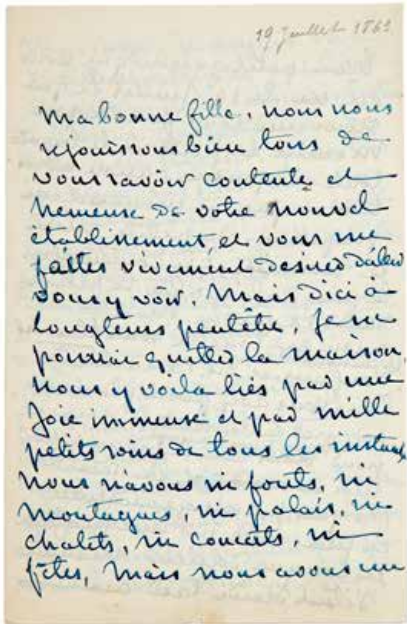 19 Juillet 186
Ma bonne fille, nous nous
rejouissons bien tous de
vous savoir contente et
heureuse de votre nouvel
établissement, et vous me
faites vivement desirer d'aller
vous y voir. Mais d'ici à
longtems peutêtre, je ne
pourrai quitter la maison,
nous y voila liés par une
joie immense et par mille
petits soins de tous les instants
nous n'avons ni forêts, ni
montagnes, ni palais, ni
chalets, ni concerts, ni
fêtes, Mais nous avons un